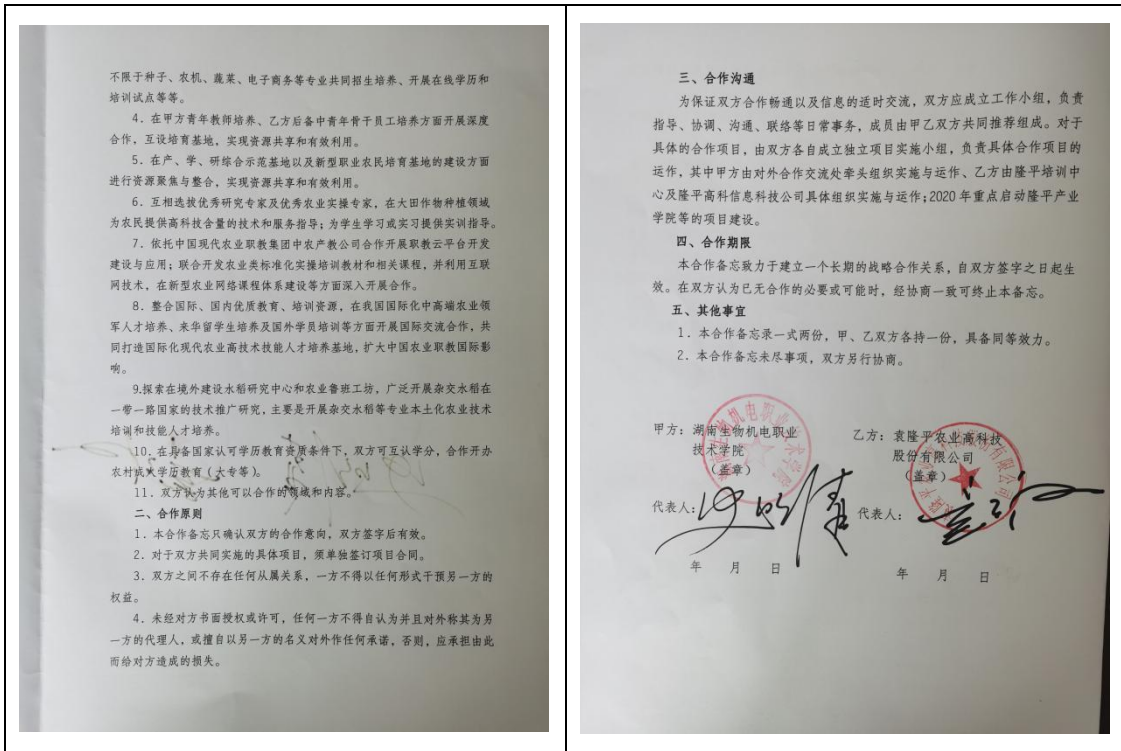 不限于种子、农机、蔬菜、电子商务等专业共同招生培养、开展在线学历和
培训试点等等。
4．在甲方青年教师培养、乙方后备中青年骨干员工培养方面开展深度
合作，互设培育基地，实现资源共享和有效利用。
5．在产、学、研综合示范基地以及新型职业农民培育基地的建设方面
进行资源聚焦与整合，实现资源共享和有效利用。
6．互相选拔优秀研究专家及优秀农业实操专家，在大田作物种植领域
为农民提供高科技含量的技术和服务指导；为学生学习或实习提供实训指导。
7．依托中国现代农业职教集团中农产教公司合作开展职教云平台开发
建设与应用；联合开发农业类标准化实操培训教材和相关课程，并利用互联
网技术，在新型农业网络课程体系建设等方面深入开展合作。
8．整合国际、国内优质教育、培训资源，在我国国际化中高端农业领
军人才培养、来华留学生培养及国外学员培训等方面开展国际交流合作，共
同打造国际化现代农业高技术技能人才培养基地，扩大中国农业职教国际影
响。
9.探索在境外建设水稻研究中心和农业鲁班工坊，广泛开展杂交水稻在
一带一路国家的技术推广研究，主要是开展杂交水稻等专业本土化农业技术
培训和技能人才培养。
10．在具备国家认可学历教育资质条件下，双方可互认学分，合作开办
农村成人学历教育（大专等）。
11．双方认为其他可以合作的领域和内容。
二、合作原则
1．本合作备忘只确认双方的合作意向，双方签字后有效。
2．对于双方共同实施的具体项目，须单独签订项目合同。
3．双方之间不存在任何从属关系，一方不得以任何形式干预另一方的
权益。
4．未经对方书面授权或许可，任何一方不得自认为并且对外称其为另
一方的代理人，或擅自以另一方的名义对外作任何承诺，否则，应承担由此
而给对方造成的损失。
三、合作沟通
为保证双方合作畅通以及信息的适时交流，双方应成立工作小组，负责
指导、协调、沟通、联络等日常事务，成员由甲乙双方共同推荐组成。对于
具体的合作项目，由双方各自成立独立项目实施小组，负责具体合作项目的
运作，其中甲方由对外合作交流处牵头组织实施与运作、乙方由隆平培训中
心及隆平高科信息科技公司具体组织实施与运作；2020 年重点启动隆平产业
学院等的项目建设。
四、合作期限
本合作备忘致力于建立一个长期的战略合作关系，自双方签字之日起生
效。在双方认为已无合作的必要或可能时，经协商一致可终止本备忘。
五、其他事宜
1．本合作备忘录一式两份，甲、乙双方各持一份，具备同等效力。
2．本合作备忘未尽事项，双方另行协商。
甲方：湖南生物机电职业
技术学院
（盖章）
代表人：
年 月 日
乙方：袁隆平农业高科技
股份有限公司
（盖章）
代表人：
年 月 日